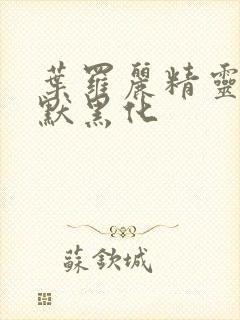 葉羅麗精靈
默黑化
蘇欽城